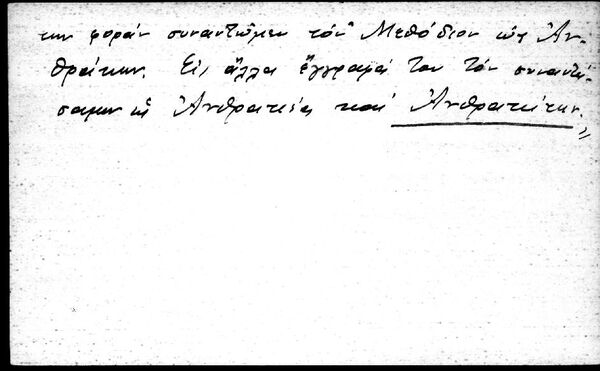 την φοράν συναντῶμεν τόν Μεθόδιον ὡς Ἀν-
θρακην. Εἰς ἄλλα ἔγγραφά του τόν συναντή-
σαμεν ὡς Ἀνθρακέα καί Ἀνθρακίτην.